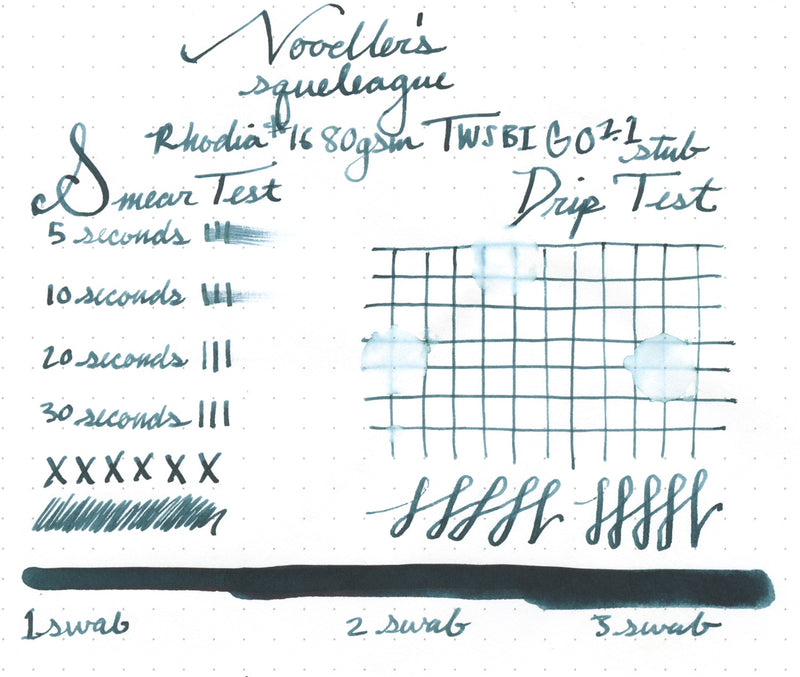 Nooeller's
squeleague
Rhodia #16 80gsm TWSBI GO 1.1 stub
Smear Test
Drip Test
5 seconds
10 seconds
20 seconds
30 seconds
X X X X X X
1 swab
2 swab
3 swab